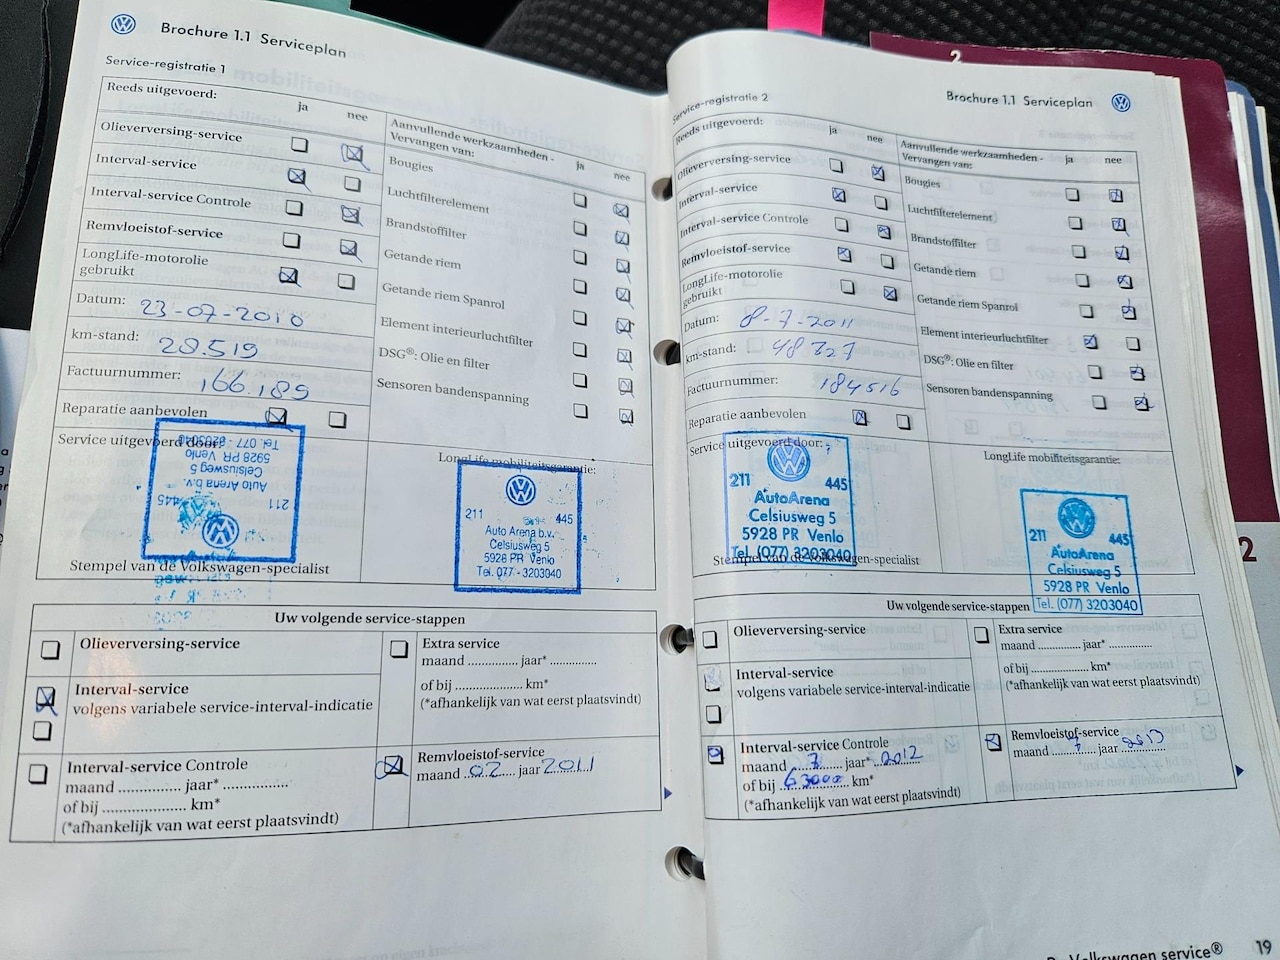 Brochure 1.1 Serviceplan
Service-registratie 1
Reeds uitgevoerd:
ja
nee
Olieverversing-service
Interval-service
Interval-service Controle
Remvloeistof-service
LongLife-motorolie
gebruikt
Datum: 23-07-2010
km-stand: 28.519
Factuurnummer: 166.189
Reparatie aanbevolen
Aanvullende werkzaamheden -
Vervangen van:
ja
nee
Bougies
Luchtfilterelement
Brandstoffilter
Getande riem
Getande riem Spanrol
Element interieurluchtfilter
DSG®: Olie en filter
Sensoren bandenspanning
Service uitgevoerd door:
211 445
Auto Arena b.v.
Celsiusweg 5
5928 PR Venlo
Tel. 077 - 3203040
Stempel van de Volkswagen-specialist
LongLife mobiliteitsgarantie:
211 445
Auto Arena b.v.
Celsiusweg 5
5928 PR Venlo
Tel. 077 - 3203040
Uw volgende service-stappen
Olieverversing-service
Interval-service
volgens variabele service-interval-indicatie
Interval-service Controle
maand ............... jaar* ...............
of bij ..................... km*
(*afhankelijk van wat eerst plaatsvindt)
Extra service
maand .............. jaar* .............
of bij ..................... km*
(*afhankelijk van wat eerst plaatsvindt)
Remvloeistof-service
maand 02 jaar 2011
Service-registratie 2
Brochure 1.1 Serviceplan
Reeds uitgevoerd:
ja
nee
Olieverversing-service
Interval-service
Interval-service Controle
Remvloeistof-service
LongLife-motorolie
gebruikt
Datum: 8-7-2011
km-stand: 48727
Factuurnummer: 184516
Reparatie aanbevolen
Aanvullende werkzaamheden -
Vervangen van:
ja
nee
Bougies
Luchtfilterelement
Brandstoffilter
Getande riem
Getande riem Spanrol
Element interieurluchtfilter
DSG®: Olie en filter
Sensoren bandenspanning
Service uitgevoerd door:
211 445
AutoArena
Celsiusweg 5
5928 PR Venlo
Tel. (077) 3203040
Stempel van de Volkswagen-specialist
LongLife mobiliteitsgarantie:
211 445
AutoArena
Celsiusweg 5
5928 PR Venlo
Tel. (077) 3203040
Uw volgende service-stappen
Olieverversing-service
Interval-service
volgens variabele service-interval-indicatie
Interval-service Controle
maand 7 jaar* 2012
of bij 63000 km*
(*afhankelijk van wat eerst plaatsvindt)
Extra service
maand ............ jaar* ............
of bij .................... km*
(*afhankelijk van wat eerst plaatsvindt)
Remvloeistof-service
maand 7 jaar 2013
Volkswagen service® 19
2
2